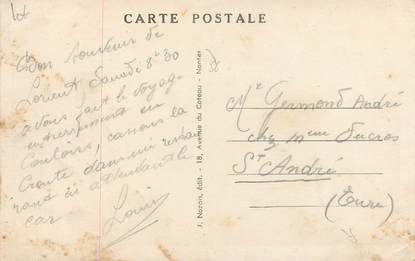 CARTE POSTALE
Bon souvenir de
Lorient Samedi 8h30
avons fait le voyage
entièrement en
Couloirs, cassons la
Croute dans un restau
rant en attendant le
car Louis
J. Nozais, édit. - 18, Avenue du Coteau - Nantes
Mr Germond André
chez Mme Ducros
St André
(Eure)